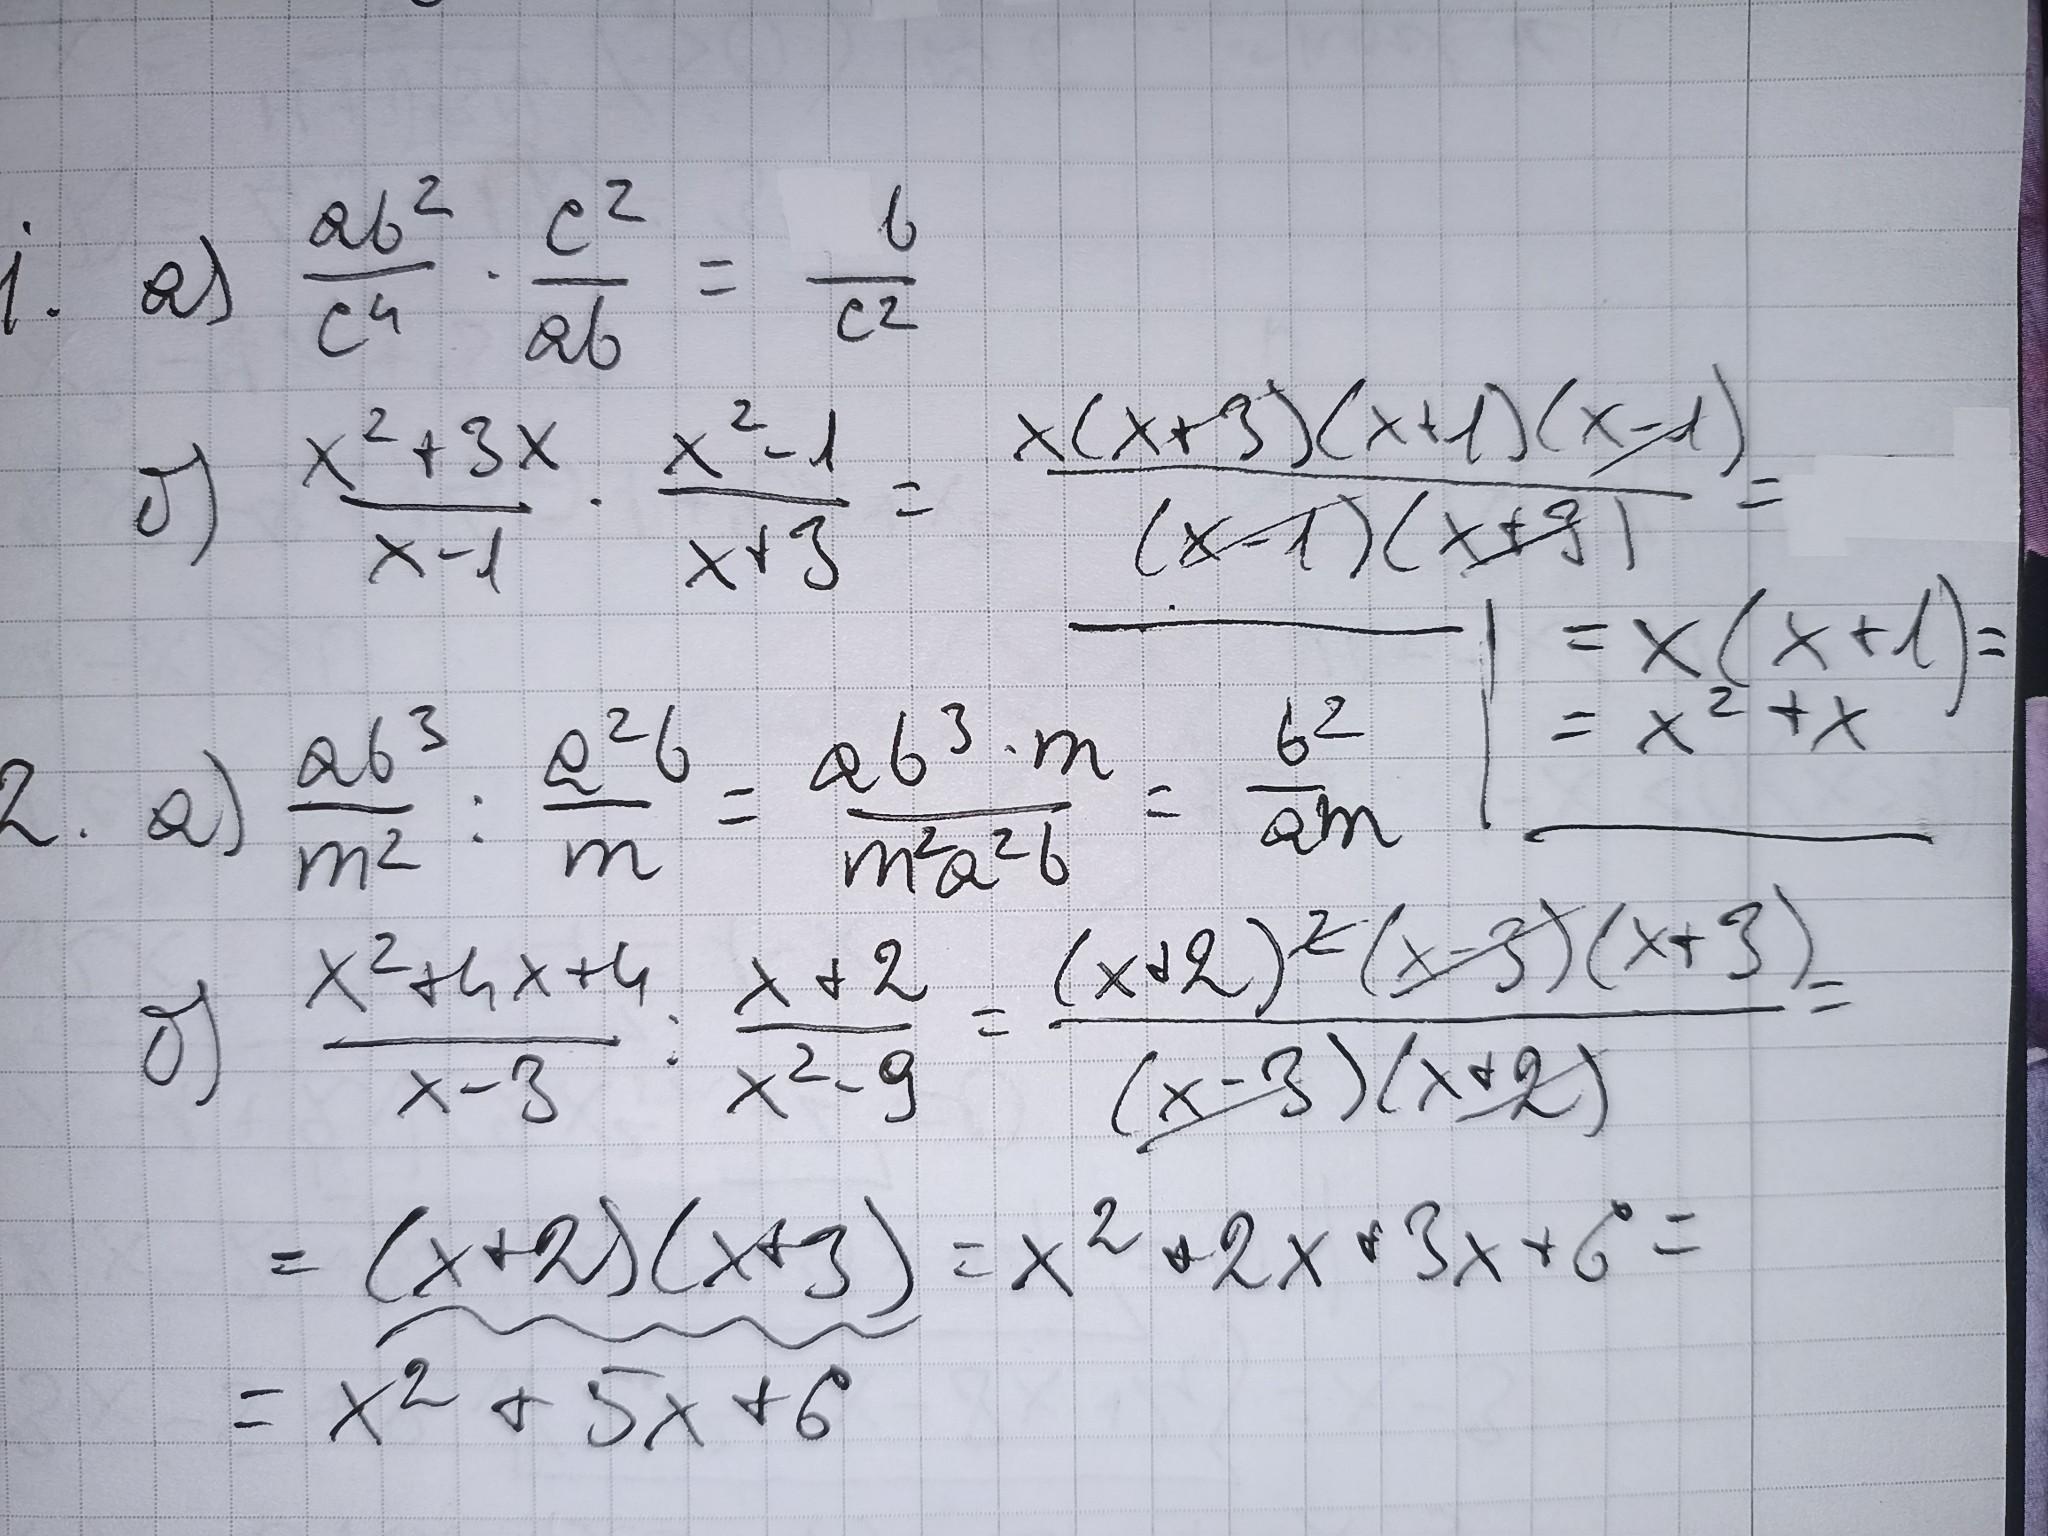 1. а) ab²/c⁴ · c²/ab = b/c²
б) x²+3x/x-1 · x²-1/x+3 = x(x+3)(x+1)(x-1)/(x-1)(x+3) =
= x(x+1) =
= x²+x
2. а) ab³/m² : a²b/m = ab³·m/m²a²b = b²/am
б) x²+4x+4/x-3 : x+2/x²-9 = (x+2)²(x-3)(x+3)/(x-3)(x+2) =
= (x+2)(x+3) = x²+2x+3x+6 =
= x²+5x+6